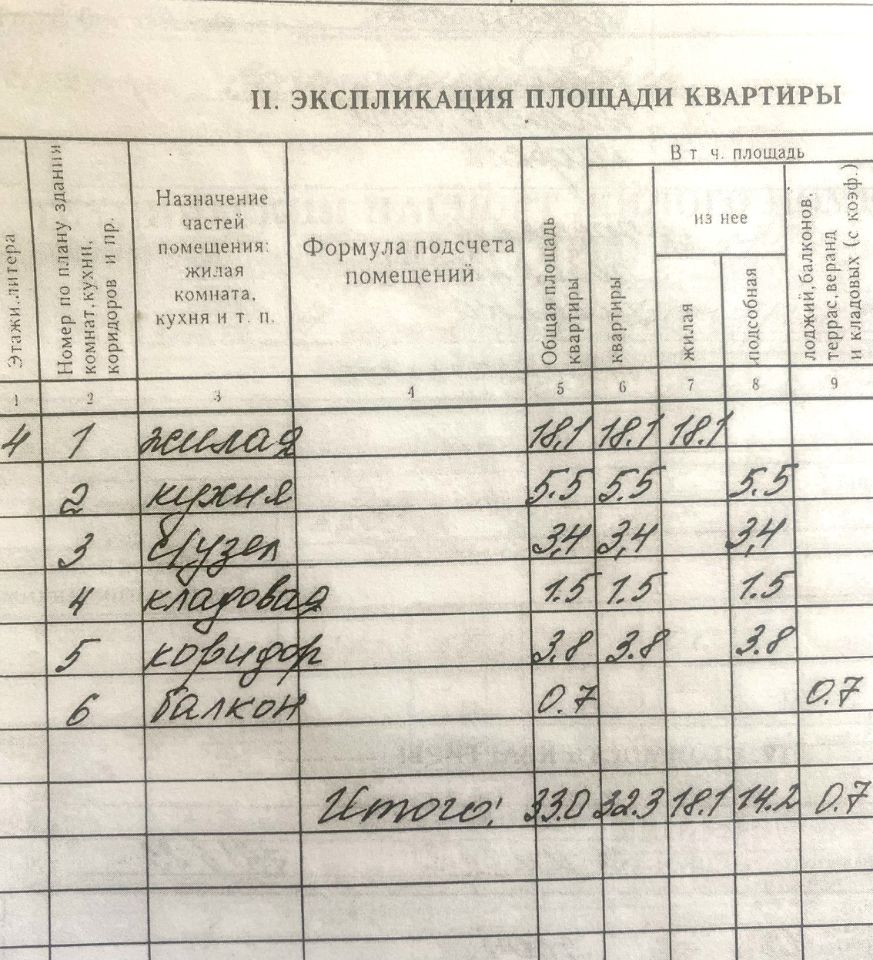 II. ЭКСПЛИКАЦИЯ ПЛОЩАДИ КВАРТИРЫ
Этажи, литера
Номер по плану здания
комнат, кухни,
коридоров и пр.
Назначение
частей
помещения:
жилая
комната,
кухня и т. п.
Формула подсчета
помещений
Общая площадь
квартиры
В т. ч. площадь
квартиры
из нее
жилая
подсобная
лоджий, балконов,
террас, веранд
и кладовых (с коэф.)
1 2 3 4 5 6 7 8 9
4 1 жилая 18,1 18.1 18.1
2 кухня 5.5 5.5 5.5
3 с/узел 3,4 3,4 3,4
4 кладовая 1.5 1.5 1.5
5 коридор 3.8 3.8 3.8
6 балкон 0.7 0.7
Итого: 33.0 32.3 18.1 14.2 0.7